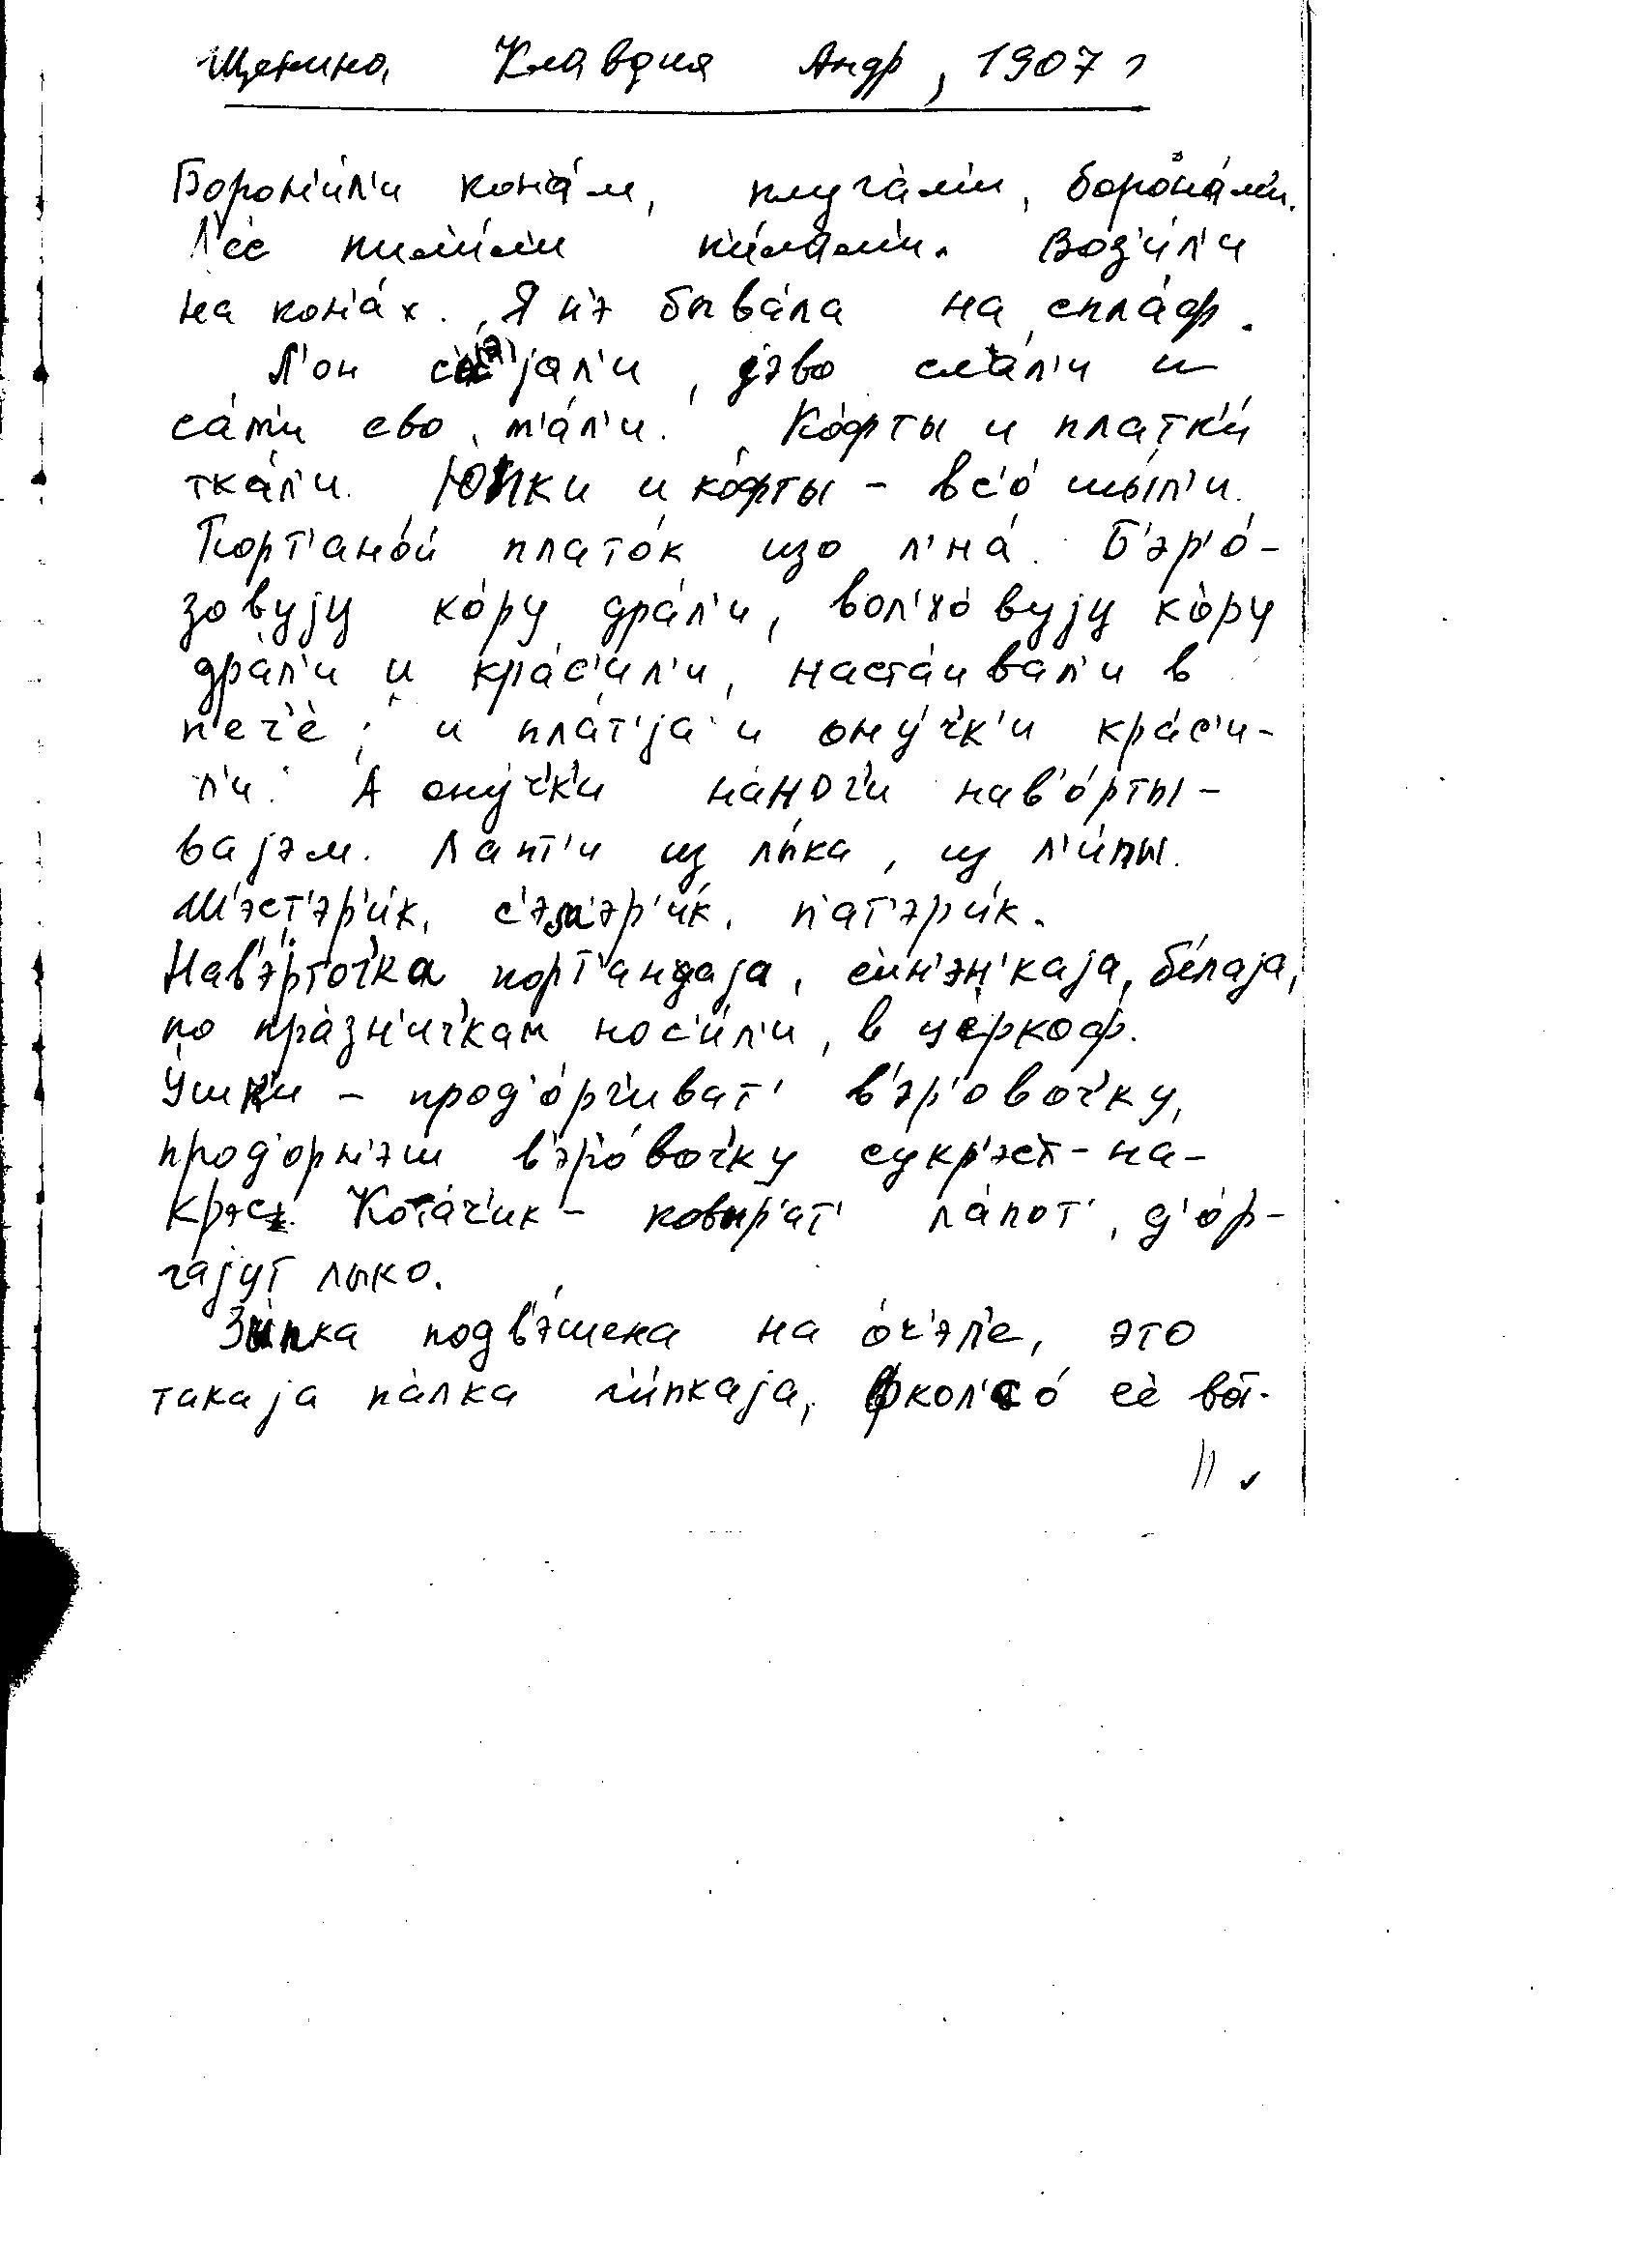 Щекина Клавдия Андр, 1907 г
Борон'и́л'и кон'а́м, плуга́м'и, боро́на́м'и.
Л'ес пил'и́л'и п'и́лам'и. Воз'и́л'и
на кон'а́х. Я н'э быва́ла на спла́ф.
Л'он с'э́јал'и, јэво мл'а́л'и и
са́м'и ево т'а́л'и. Ко́фты и платк'и́
тка́л'и. Ю́пки и ко́фты – вс'о́ шы́л'и.
Порт'ано́й плато́к изо л'на́. Б'эр'о́-
зовују ко́ру дра́л'и, вол'хо́вују ко́ру
дра́л'и и кра́с'ил'и, наста́ивал'и в
п'еч'е́; и пла́т'ја и ону́ч'к'и кра́с'и-
л'и. А ону́ч'к'и на́ ног'и нав'о́рты-
вајэм. Лапт'и из лы́ка, из л'и́пы.
Ш'эст'эр'и́к, с'эм'эр'и́к, п'ат'эр'и́к.
Нав'э́рточ'ка порт'анаја, с'и́н'эн'каја, б'е́лаја,
по пра́зн'ич'кам нос'и́л'и, в це́ркоф.
У́шк'и – прод'о́рг'иват' в'эр'о́воч'ку,
прод'орн'эш в'эр'о́воч'ку сукр'эст-на-
крэст. Кота́ч'ик – ковыр'а́т' ла́пот', д'о́р-
гајут лыко.
Зы́пка подв'э́шена на о́ч'эл'е, это
такаја па́лка г'и́пкаја, фкол'со́ её во́т-
11